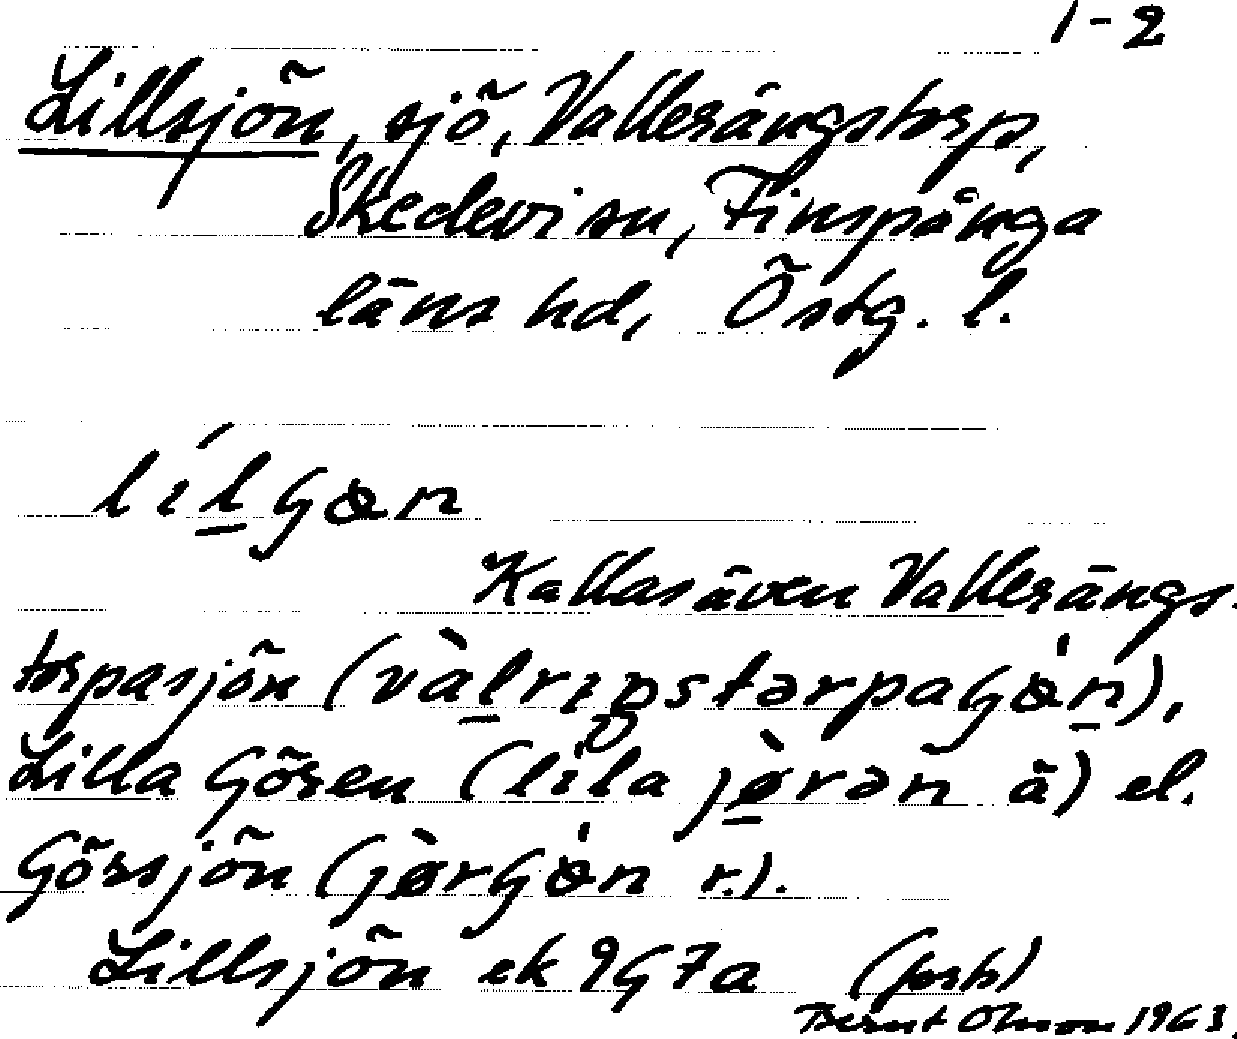 1-2
Lillsjön, sjö, Vallerängstorp,
Skedevi sn, Finspånga
läns hd, Östg. l.
lílGøn
Kallas även Vallerängs-
torpasjön (vàlrɪŋstərpaGø̀n),
Lilla Gören (lɪla jø̀rən ä) el.
Görsjön (jø̀rGø̀n r.).
Lillsjön ek 9G7a (forts)
Bernt Olsson 1963.